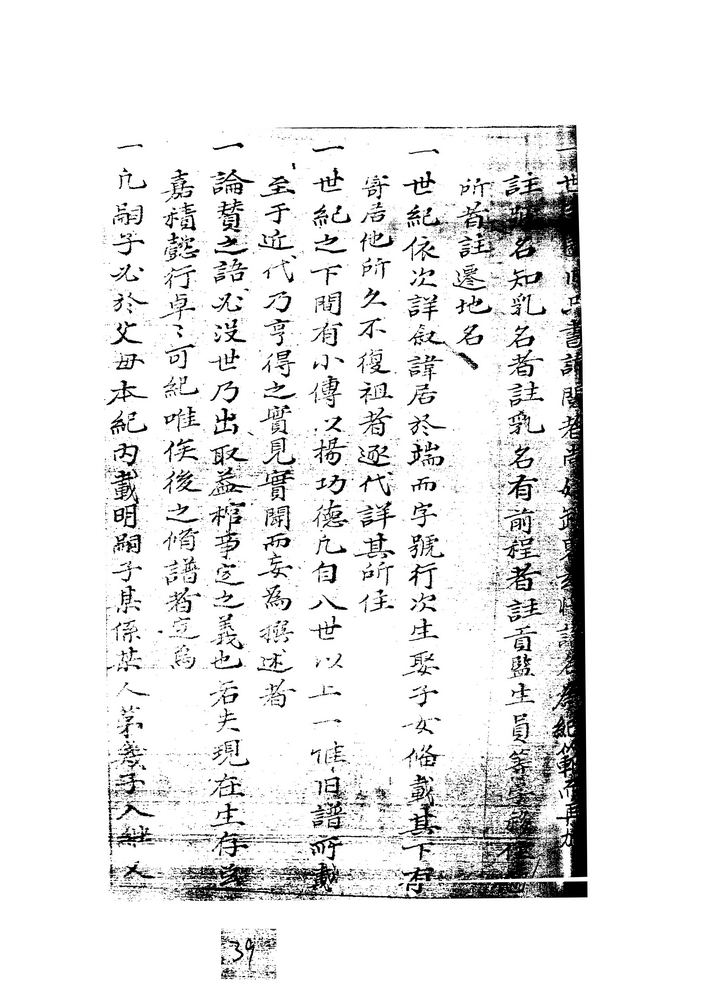 一世系圖
註號名知乳名者註乳名有前程者註貢監生員等字移住
所者註遷地名
一世紀依次詳叙諱居於端而字號行次生娶子女俻載其下有
寄居他所久不復祖者逐代詳其所住
一世紀之下間有小傳以揚功德凢自八世以上一惟旧譜所載
至于近代乃寔得之實見實聞而妄為撰述者
一論賛之語必没世乃出取蓋棺事定之義也若夫現在生存
嘉積懿行卓〻可紀唯俟後之脩譜者定焉
一凢嗣子必於父毋本紀内載明嗣子某係某人第幾子入継又
39